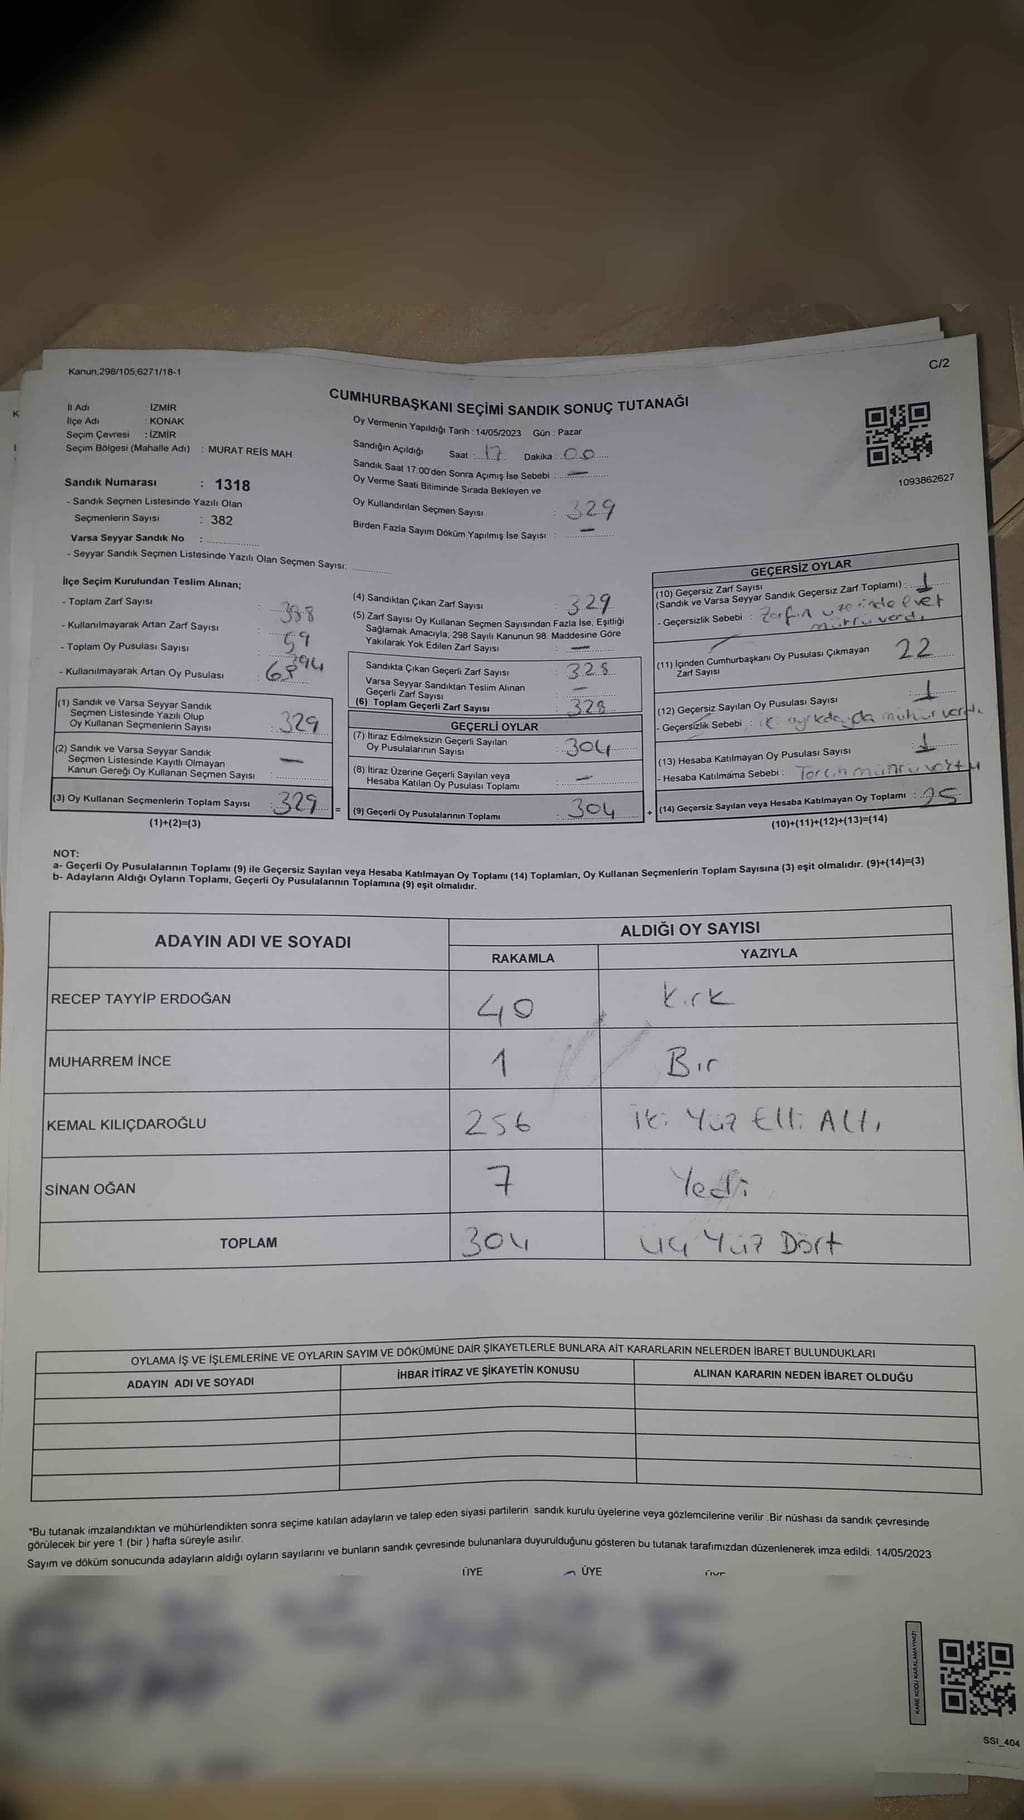 Kanun,298/105,6271/18-1
C/2
CUMHURBAŞKANI SEÇİMİ SANDIK SONUÇ TUTANAĞI
İl Adı : İZMİR
İlçe Adı : KONAK
Seçim Çevresi : İZMİR
Seçim Bölgesi (Mahalle Adı) : MURAT REİS MAH.
Sandık Numarası : 1318
- Sandık Seçmen Listesinde Yazılı Olan
Seçmenlerin Sayısı : 382
Varsa Seyyar Sandık No :
- Seyyar Sandık Seçmen Listesinde Yazılı Olan Seçmen Sayısı:
Oy Vermenin Yapıldığı Tarih : 14/05/2023 Gün : Pazar
Sandığın Açıldığı Saat : 17 Dakika : 00
Sandık Saat 17:00'den Sonra Açılmış İse Sebebi : —
Oy Verme Saati Bitiminde Sırada Bekleyen ve
Oy Kullandırılan Seçmen Sayısı : 329
Birden Fazla Sayım Döküm Yapılmış İse Sayısı : —
1093862627
İlçe Seçim Kurulundan Teslim Alınan;
- Toplam Zarf Sayısı : 388
- Kullanılmayarak Artan Zarf Sayısı : 59
- Toplam Oy Pusulası Sayısı : 394
- Kullanılmayarak Artan Oy Pusulası :
(1) Sandık ve Varsa Seyyar Sandık
Seçmen Listesinde Yazılı Olup
Oy Kullanan Seçmenlerin Sayısı : 329
(2) Sandık ve Varsa Seyyar Sandık
Seçmen Listesinde Kayıtlı Olmayan
Kanun Gereği Oy Kullanan Seçmen Sayısı : —
(3) Oy Kullanan Seçmenlerin Toplam Sayısı : 329 =
(1)+(2)=(3)
(4) Sandıktan Çıkan Zarf Sayısı : 329
(5) Zarf Sayısı Oy Kullanan Seçmen Sayısından Fazla İse, Eşitliği
Sağlamak Amacıyla, 298 Sayılı Kanunun 98. Maddesine Göre
Yakılarak Yok Edilen Zarf Sayısı : —
Sandıkta Çıkan Geçerli Zarf Sayısı : 328
Varsa Seyyar Sandıktan Teslim Alınan
Geçerli Zarf Sayısı : —
(6) Toplam Geçerli Zarf Sayısı : 328
GEÇERLİ OYLAR
(7) İtiraz Edilmeksizin Geçerli Sayılan
Oy Pusulalarının Sayısı : 304
(8) İtiraz Üzerine Geçerli Sayılan veya
Hesaba Katılan Oy Pusulası Toplamı : —
(9) Geçerli Oy Pusulalarının Toplamı : 304 +
GEÇERSİZ OYLAR
(10) Geçersiz Zarf Sayısı
(Sandık ve Varsa Seyyar Sandık Geçersiz Zarf Toplamı) : 1
- Geçersizlik Sebebi : Zarfın üzerinde evet
mührü vardı
(11) İçinden Cumhurbaşkanı Oy Pusulası Çıkmayan
Zarf Sayısı 22
(12) Geçersiz Sayılan Oy Pusulası Sayısı 1
- Geçersizlik Sebebi : iki ayrı adayda mühür vardı
(13) Hesaba Katılmayan Oy Pusulası Sayısı 1
- Hesaba Katılmama Sebebi : Tercih mührü yoktu
(14) Geçersiz Sayılan veya Hesaba Katılmayan Oy Toplamı : 25
(10)+(11)+(12)+(13)=(14)
NOT:
a- Geçerli Oy Pusulalarının Toplamı (9) ile Geçersiz Sayılan veya Hesaba Katılmayan Oy Toplamı (14) Toplamları, Oy Kullanan Seçmenlerin Toplam Sayısına (3) eşit olmalıdır. (9)+(14)=(3)
b- Adayların Aldığı Oyların Toplamı, Geçerli Oy Pusulalarının Toplamına (9) eşit olmalıdır.
ADAYIN ADI VE SOYADI ALDIĞI OY SAYISI
RAKAMLA YAZIYLA
RECEP TAYYİP ERDOĞAN 40 Kırk
MUHARREM İNCE 1 Bir
KEMAL KILIÇDAROĞLU 256 İki Yüz Elli Altı
SİNAN OĞAN 7 Yedi
TOPLAM 304 Üç Yüz Dört
OYLAMA İŞ VE İŞLEMLERİNE VE OYLARIN SAYIM VE DÖKÜMÜNE DAİR ŞİKAYETLERLE BUNLARA AİT KARARLARIN NELERDEN İBARET BULUNDUKLARI
ADAYIN ADI VE SOYADI İHBAR İTİRAZ VE ŞİKAYETİN KONUSU ALINAN KARARIN NEDEN İBARET OLDUĞU
*Bu tutanak imzalandıktan ve mühürlendikten sonra seçime katılan adayların ve talep eden siyasi partilerin sandık kurulu üyelerine veya gözlemcilerine verilir .Bir nüshası da sandık çevresinde
görülecek bir yere 1 (bir ) hafta süreyle asılır.
Sayım ve döküm sonucunda adayların aldığı oyların sayılarını ve bunların sandık çevresinde bulunanlara duyurulduğunu gösteren bu tutanak tarafımızdan düzenlenerek imza edildi. 14/05/2023
ÜYE ÜYE ÜYE
KARE KODU KARALAMAYINIZ!
SSI_404